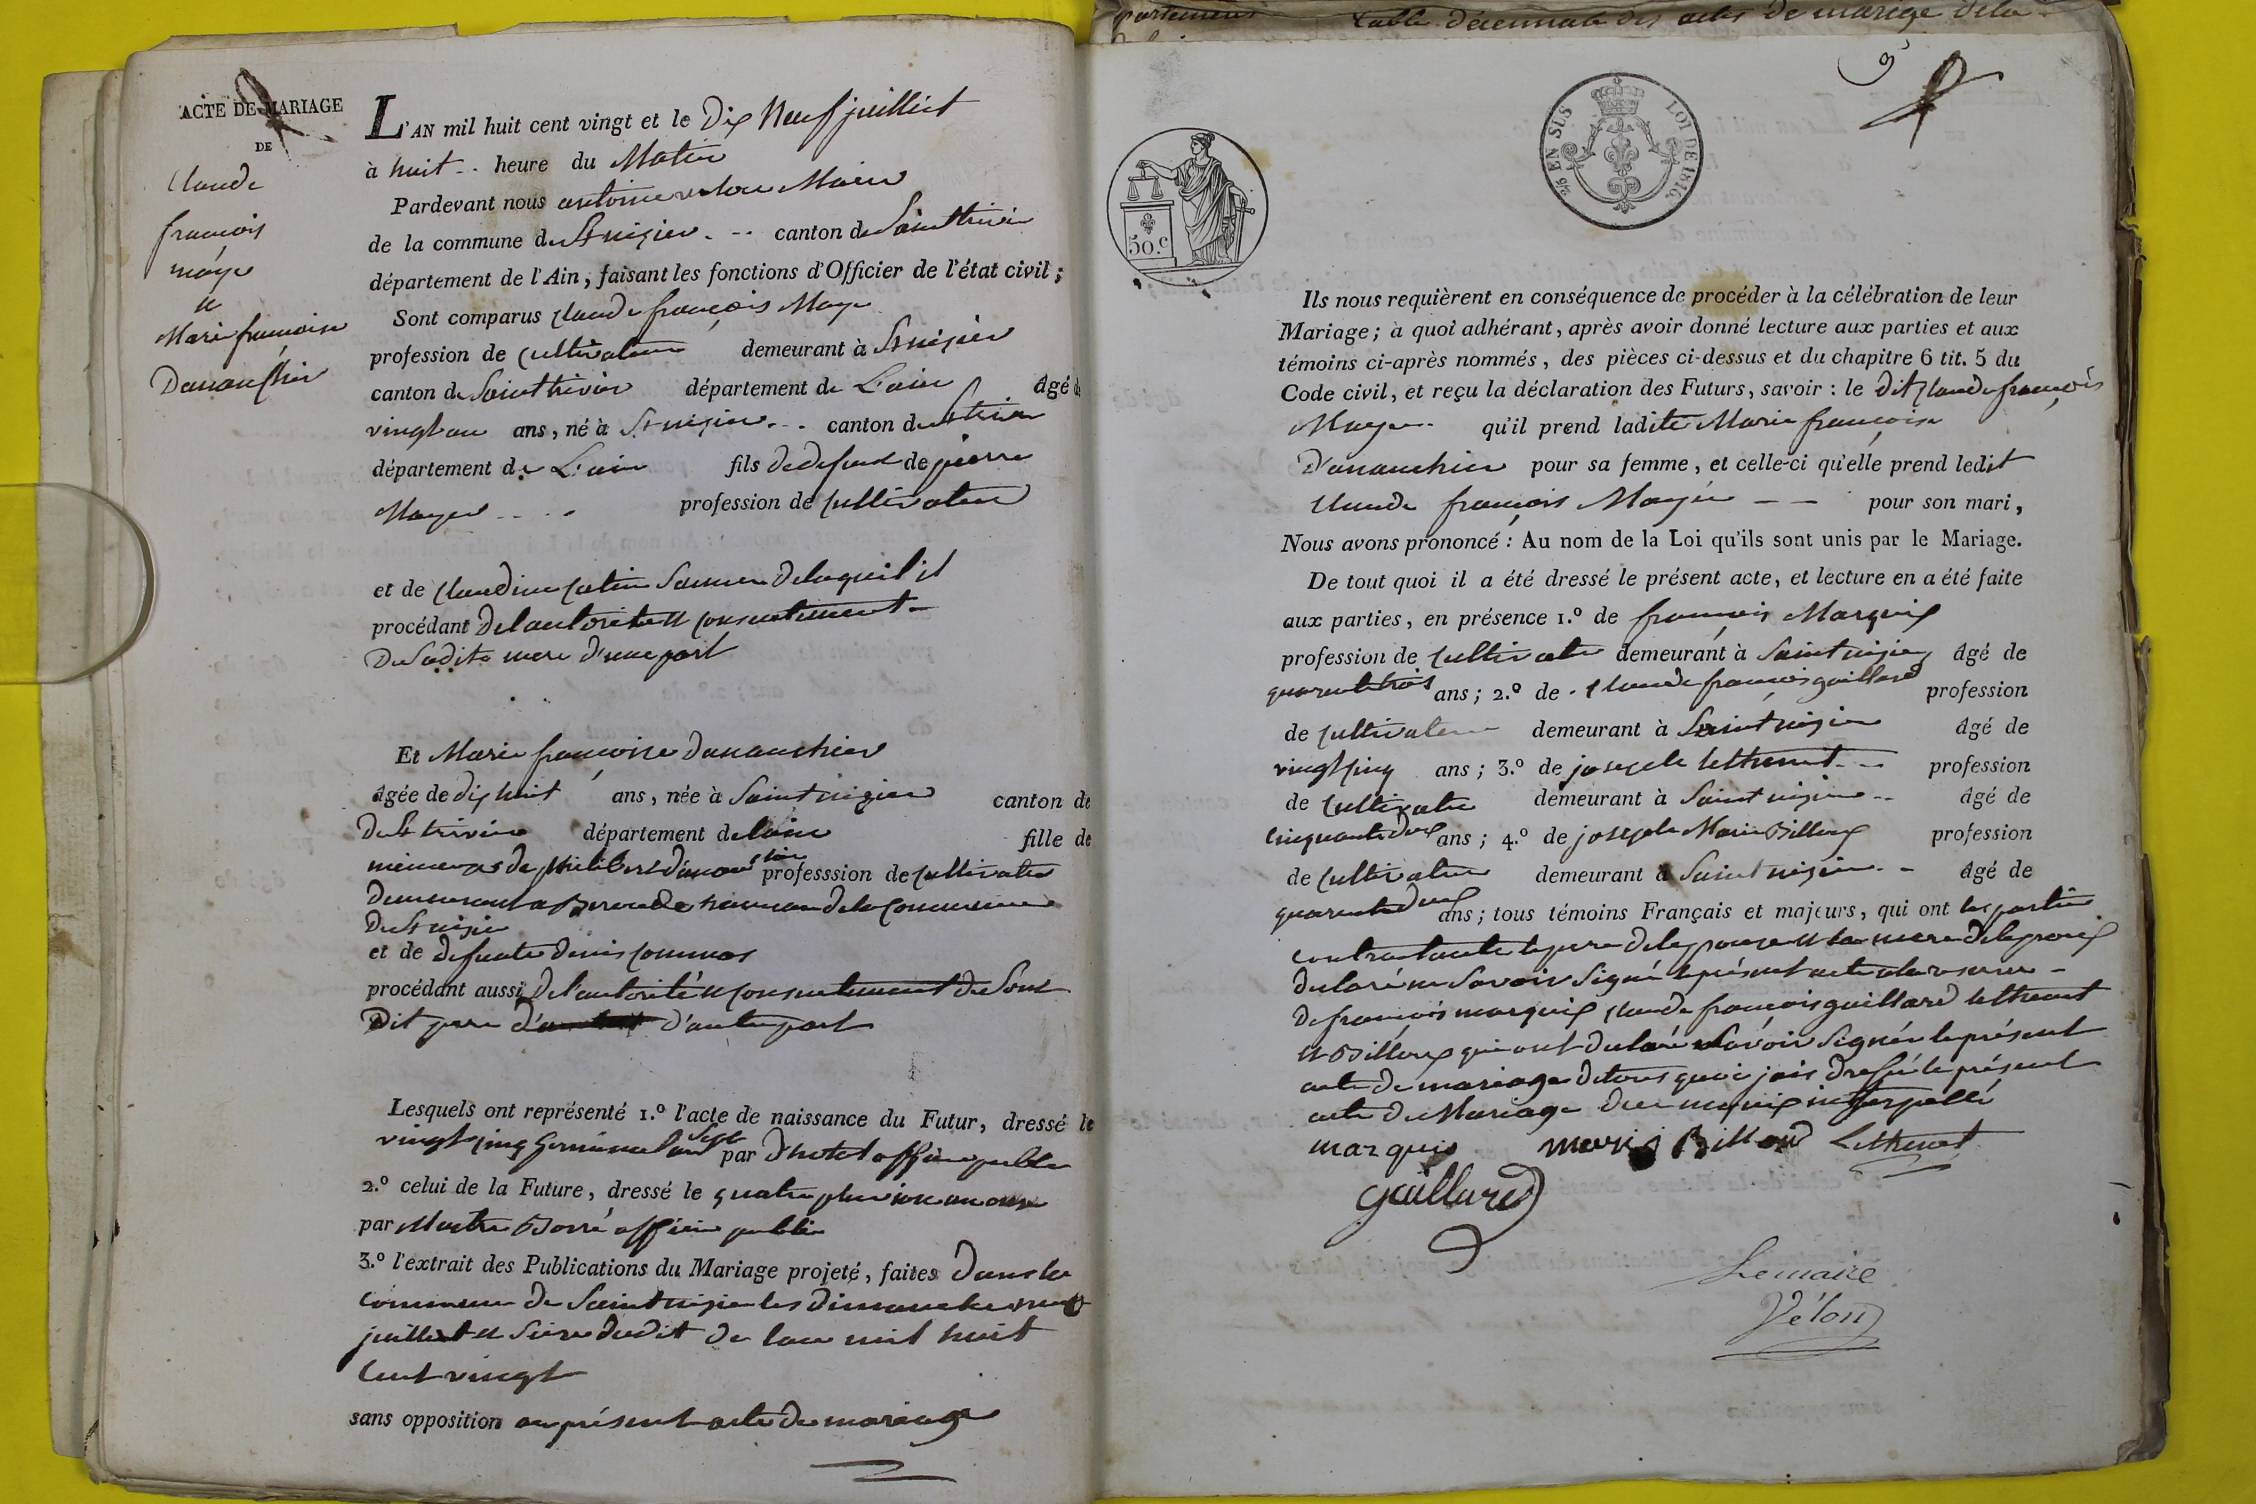 ACTE DE MARIAGE
DE
Claude
françois
maÿe
et
Marie françoise
Dananchier
L'AN mil huit cent vingt et le Dix Neuf juillict
à huit heure du Matin
Pardevant nous antoine velon Maire
de la commune de St nizier canton de Saint trivier
département de l'Ain, faisant les fonctions d'Officier de l'état civil;
Sont comparus Claude françois Maye
profession de Cultivateur demeurant à St nizier
canton de Saint trivier département de L'ain âgé de
vingt un ans, né à St nizier canton de St trivier
département de L'ain fils de defunt de pierre
Mayer profession de Cultivateur
et de Claudine Catin Sa mere de laquel il
procédant De l'autorité et consentement
De Sadite mere d'une part
Et Marie françoise danauchier
âgée de dix huit ans, née à Saint nizier canton de
De St trivier département de lain fille de
mineur de philibert danauchier professsion de Cultivateur
Demeurant a de la Commune
De St nizier
et de defunte denise Commas
procédant aussi De l'autorité et consentement de Son
Dit pere d'autre part
Lesquels ont représenté 1.º l'acte de naissance du Futur, dressé le
vingt cinq Germinal an Sept par D'hotel officier public
2.º celui de la Future, dressé le quatre pluviose an onze
par Maitre Borré officier public
3.º l'extrait des Publications du Mariage projeté, faites Dans la
Commune de Saint nizier les Dimanche neuf
juillet et Seize dudit De l'an mil huit
Cent vingt
sans opposition au présent acte de mariage
50.c
EN SUS LOI DE 1816.
9
Ils nous requièrent en conséquence de procéder à la célébration de leur
Mariage; à quoi adhérant, après avoir donné lecture aux parties et aux
témoins ci-après nommés, des pièces ci-dessus et du chapitre 6 tit. 5 du
Code civil, et reçu la déclaration des Futurs, savoir: le dit Claude françois
Mayer qu'il prend ladite Marie françoise
D'anauchier pour sa femme, et celle-ci qu'elle prend ledit
Claude françois Mayer pour son mari,
Nous avons prononcé: Au nom de la Loi qu'ils sont unis par le Mariage.
De tout quoi il a été dressé le présent acte, et lecture en a été faite
aux parties, en présence 1.º de françois Marquis
profession de Cultivateur demeurant à Saint nizier âgé de
quarente trois ans; 2.º de Claude françois guillard profession
de Cultivateur demeurant à Saint nizier âgé de
vingt Cinq ans; 3.º de josepde lethenet profession
de Cultivateur demeurant à Saint nizier âgé de
Cinquante deux ans; 4.º de josepde Marie Billoux profession
de Cultivateur demeurant à Saint nizier âgé de
quarente deux ans; tous témoins Français et majeurs, qui ont les partie
contractante le pere de lepouse et la mere de lepoux
declaré ne Savoir Signé le présent acte a la reserve
De françois marquis Claude françois guillard lethenet
et Billoux qui ont declaré Savoir Signée le présent
acte de mariage de tous quoi jais dressé le présent
acte de Mariage interpellé
marquis marie Billoud Lethenet
guillard
Le maire
Vélon